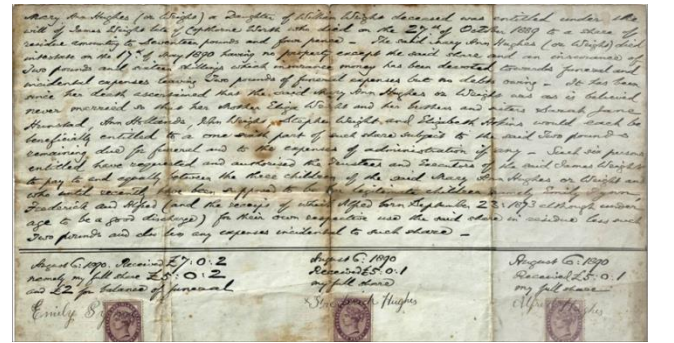 Mary Ann Hughes (or Wright) a Daughter of William Wright deceased was entitled under the
will of James Wright late of Copthorne Worth who died on the 27th of October 1889 to a share of
residue amounting to Seventeen pounds and four pence. The said Mary Ann Hughes (or Wright) died
intestate on the of May 1890 having no property except the said share and an insurance of
Two pounds and nineteen shillings which insurance money has been devoted towards funeral and
incidental expenses leaving Two pounds of funeral expenses but no debts owing. It has been
since her death ascertained that the said Mary Ann Hughes or Wright was as is believed
never married so that her Mother Eliza Wright and her brothers and sisters Sarah Jane
Ann John Wright, Stephen Wright, and Elizabeth Hopkins would each be
beneficially entitled to a one sixth part of such share subject to the said Two pounds
remaining due for funeral and to the expenses of administration if any - Such six persons
entitled have requested and authorised the Trustees and Executors of the said James Wright
to pay to and equally between the three children of the said Mary Ann Hughes or Wright
who until recently have been supposed to be her legitimate children namely Emily
Frederick and Alfred (and the receipt of which Alfred born September 23: 1873 although under
age to be a good discharge) for their own respective use the said share in residue less such
Two pounds and also less any expenses incidental to such share -
August 6: 1890. Received £7:0:2
namely my full share £5:0:2
and £2 for balance of funeral
Emily
August 6: 1890
Received £5:0:1
my full share
Hughes
August 6: 1890
Received £5:0:1
my full share
Alfred Hughes